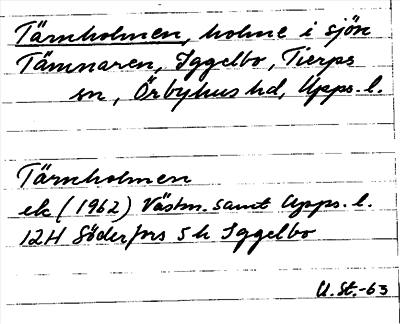 Tärnholmen, holme i sjön
Tämnaren, Iggelbo, Tierps
sn, Örbyhus hd, Upps. l.
Tärnholmen
ek (1962) Västm. samt Upps. l.
12H Söderfors 5 h Iggelbo
U.St.-63